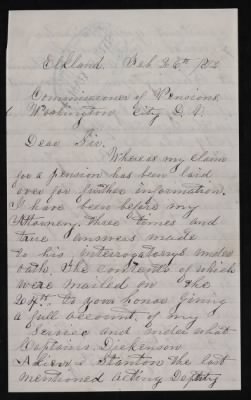 Elkland. Feb 26th 1872
Commissioner of Pensions,
Washington City D. C.
Dear Sir.
Whereas my claim
for a pension has been laid
over for further information.
I have been before my
Attorney. three times and
true answers made
to his interrogatorys under
oath. the contents of which
were mailed on the
24th. to your honor giving
a full account. of my
Service and under what
Captains. Dickenson
& Stanton the last
mentioned Acting Deputy